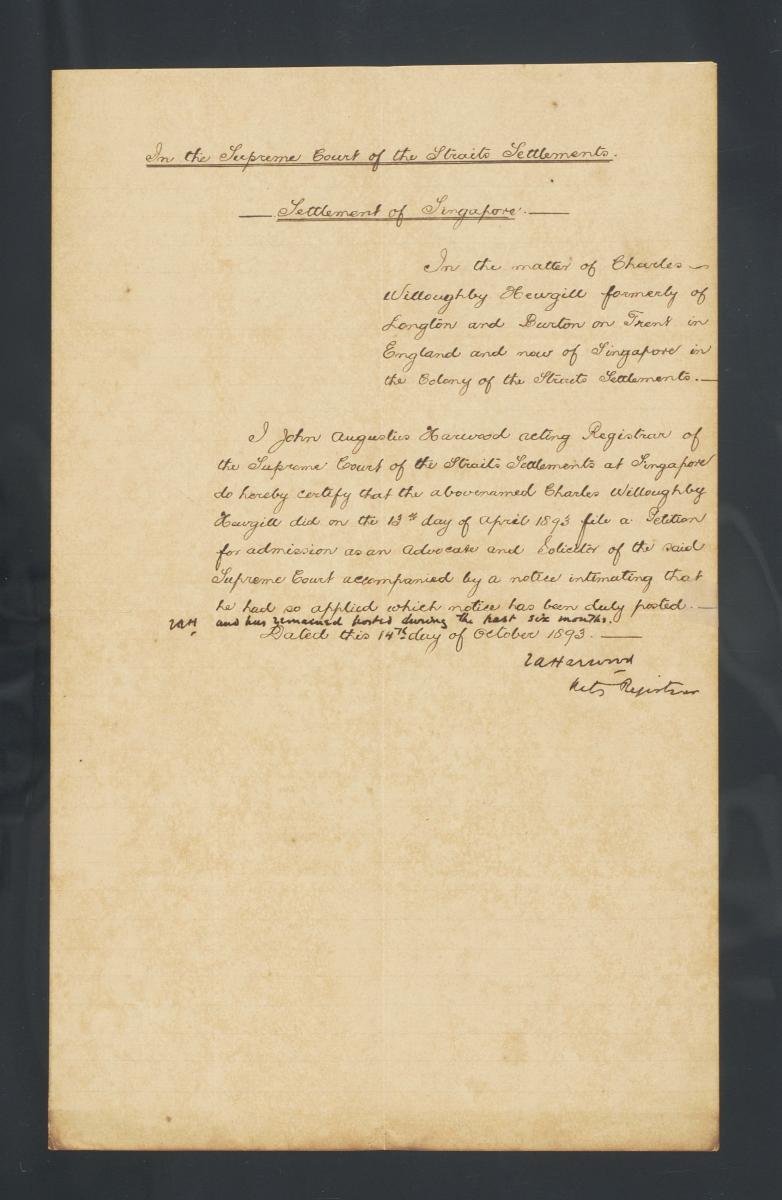 In the Supreme Court of the Straits Settlements.
Settlement of Singapore.
In the matter of Charles
Willoughby Hewgill formerly of
Longton and Burton on Trent in
England and now of Singapore in
the Colony of the Straits Settlements.
I John Augustus Harwood acting Registrar of
the Supreme Court of the Straits Settlements at Singapore
do hereby certify that the abovenamed Charles Willoughby
Hewgill did on the 13th day of April 1893 file a Petition
for admission as an Advocate and Solicitor of the said
Supreme Court accompanied by a notice intimating that
he had so applied which notice has been duly posted.
JAH and has remained posted during the past six months.
Dated this 14th day of October 1893.
JAHarwood
Actg Registrar